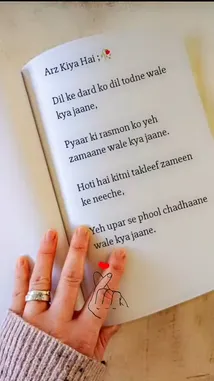 Arz Kiya Hai ;🥀
Dil ke dard ko dil todne wale
kya jaane,
Pyaar ki rasmon ko yeh
zamaane wale kya jaane.
Hoti hai kitni takleef zameen
ke neeche,
Yeh upar se phool chadhaane
wale kya jaane.